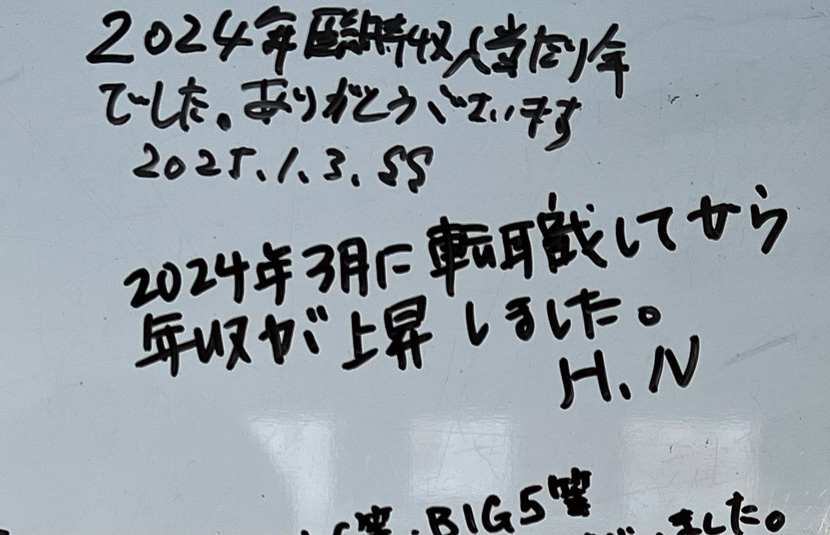 2024年臨時収入当たり年
でした。ありがとうございます
2025.1.3. SS
2024年3月に転職してから
年収が上昇しました。
H.N
等.BIG5等
ました。